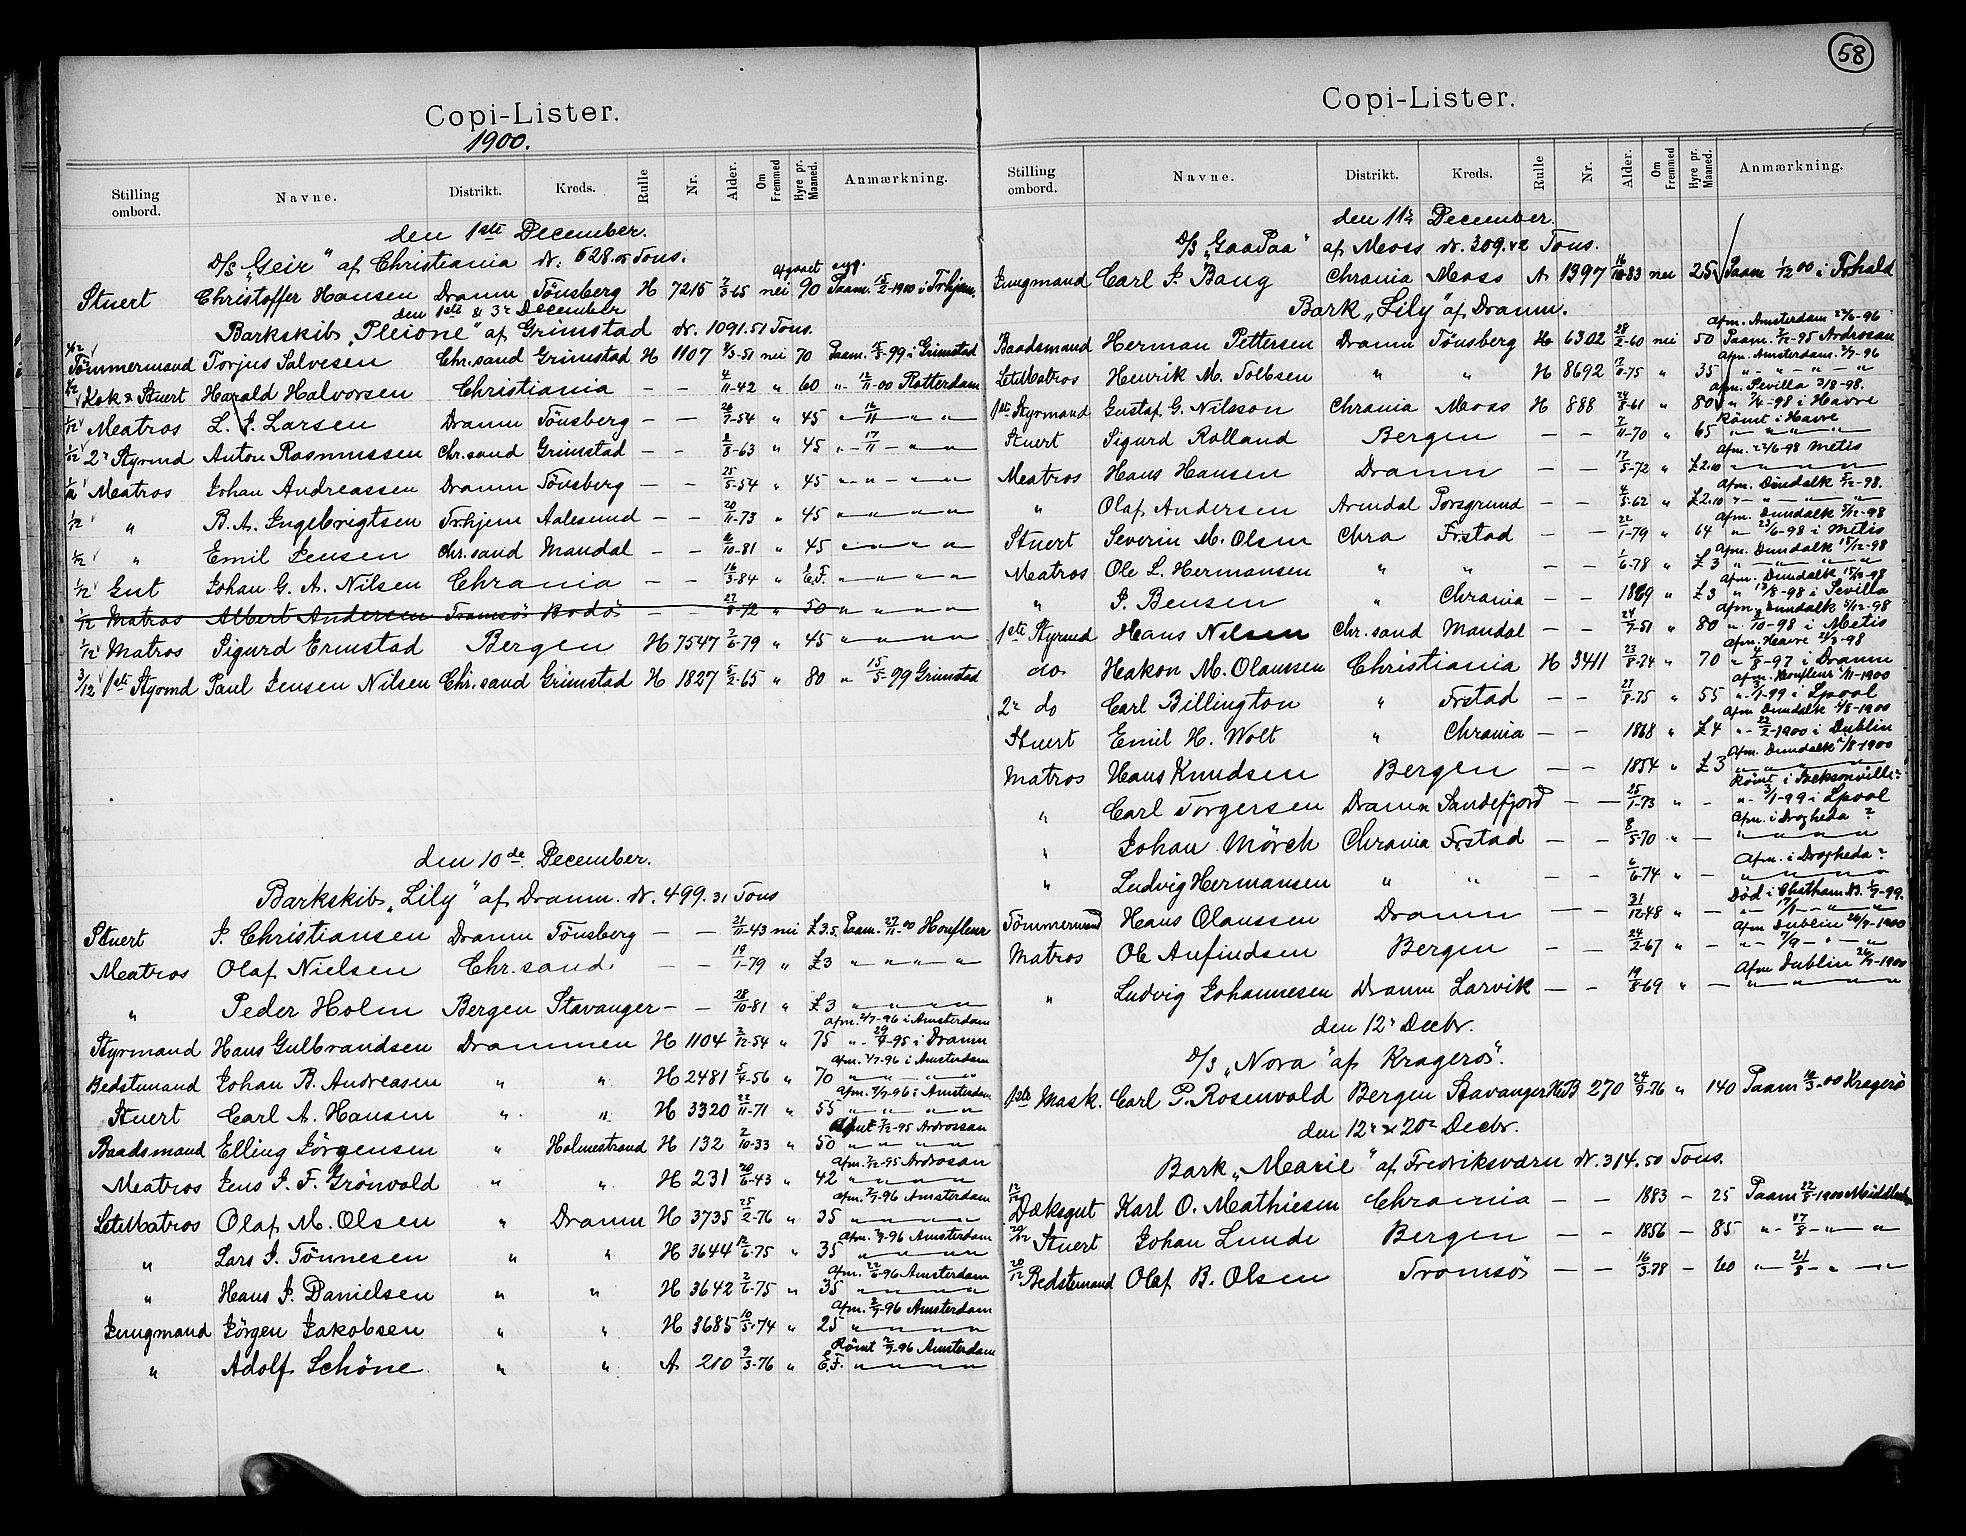 58
Copi-Lister.
1900.
Stilling ombord. Navne. Distrikt. Kreds. Rulle Nr. Alder. Om Fremmed Hyre pr. Maaned. Anmærkning.
den 1ste December.
D/S „Geir“ af Christiania Dr. 628.05 Tons.
Afgaaet syg.
Stuert Christoffer Hansen Dramm Tönsberg H 7215 2/3-65 nei 90 Paam. 15/2-1900 i Trhjem.
den 1ste & 3e December
Barkskib „Pleione“ af Grimstad Dr. 1091.51 Tons.
Tömmermand Torjus Salvesen Chr.sand Grimstad H 1107 nei 70 Grimstad
Kok & Stuert Harald Halvorsen Christiania — — 4/11-42 „ 60 „ 12/11-00 Rotterdam
1/12 Matros L. J. Larsen Dramm Tönsberg — — 26/7-54 „ 45 „ 16/11 „ „
1/12 2e Styrmd Anton Rasmussen Chr.sand Grimstad — — 8/8-63 „ 45 „ 17/11 „ „
1/12 Matros Johan Andreassen Dramm Tönsberg — — 25/5-54 „ 45 „ „ „ „
1/12 „ B. A. Ingebrigtsen Trhjem Aalesund — — 20/11-73 „ 45 „ „ „ „
1/12 „ Emil Jensen Chr.sand Mandal — — 6/10-81 „ 45 „ „ „ „
1/12 Gut Johan G. A. Nilsen Chrania — — 16/3-84 „ E.F. „ „ „ „
1/12 Matros Albert Andersen Tromsö Bodö — — 27/8-72 „ 50 „ „ „ „
1/12 Matros Sigurd Ermstad Bergen H 7547 2/6-79 „ 45 „ „ „ „
3/12 1ste Styrmd Paul Jensen Nilsen Chr.sand Grimstad H 1827 5/2-65 „ 80 „ 15/5-99 Grimstad
den 10de December.
Barkskib „Lily“ af Dramm. Dr. 499.31 Tons
Stuert J. Christiansen Dramm Tönsberg — — 21/11-43 nei £3.5. Paam. 27/11-00 Honfleur
Matros Olaf Nielsen Chr.sand — — 19/1-79 „ £3 „ „ „ „
„ Peder Holm Bergen Stavanger — — 28/10-81 „ £3 „ „ „ „
Afm. 2/7-96 i Amsterdam
Styrmand Hans Gulbrandsen Drammen H 1104 2/12-54 „ 75 „ 29/9-95 i Dramm
Afm. 2/7-96 i Amsterdam
Bedstemand Johan B. Andreasen „ „ H 2481 5/4-56 „ 70 „ „ „ „
Afm. 2/7-96 i Amsterdam
Stuert Carl A. Hansen „ „ H 3320 22/11-71 „ 55 „ „ „ „
7/12-95 Ardrossan
Baadsmand Elling Jörgensen „ Holmestrand H 132 2/10-33 „ 50 „ „ „ „
Afm. 7/12-95 Ardrosan
Matros Jens J. F. Grönvold „ „ H 231 20/6-43 „ 42 „ „ „ „
Afm. 2/7-96 Amsterdam
LetMatros Olaf M. Olsen „ Dramm H 3735 25/2-76 „ 35 „ „ „ „
Afm. 2/7-96 Amsterdam
„ Lars J. Tönnesen „ „ H 3644 12/6-75 „ 35 „ „ „ „
Afm. 22/6-96 Amsterdam
„ Hans J. Danielsen „ „ H 3642 2/6-75 „ 35 „ „ „ „
Afm. 2/7-96 Amsterdam
Jungmand Jörgen Jakobsen „ „ H 3685 10/5-74 „ 25 „ „ „ „
Römt 2/7-96 Amsterdam
„ Adolf Schöne „ „ A 210 9/3-76 „ E.F. „ „ „ „
Copi-Lister.
Stilling ombord. Navne. Distrikt. Kreds. Rulle Nr. Alder. Om Fremmed Hyre pr. Maaned. Anmærkning.
den 11te December.
D/S „GaaPaa“ af Moss Dr. 309.42 Tons.
Jungmand Carl J. Bang Chrania Moss A 1397 16/10-83 nei 25 Paam 1/12 00 i Frhald
Bark „Lily“ af Dramm.
Afm. Amsterdam 22/6-96
Baadsmand Herman Pettersen Dramm Tönsberg H 6302 28/2-60 nei 50 Paam. 7/12-95 Ardrossan
Afm. Amsterdam. 2/7-96
LetMatros Henrik M. Tolbsen „ „ H 8692 17/11-75 „ 35 „ „ „ „
Afm. Sevilla 3/8-98.
1ste Styrmand Gustaf G. Nilsson Chrania Moss H 888 24/8-61 „ 80 „ 7/4-98 i Havre
Römt i Havre
Stuert Sigurd Rolland Bergen — — 7/11-70 „ 65 „ „ „ „
Afm. 22/6-98 Metis
Matros Hans Hansen Dramm — — 17/5-72 „ £2.10 „ „ „ „
Afm. Dundalk 5/12-98.
„ Olaf Andersen Arendal Porsgrund — — 4/5-62 „ £2.10 „ „ „ „
Afm. Dundalk 5/12-98
Stuert Severin M. Olsen Chra Frstad — — 22/1-79 „ 64 „ 23/6-98 i Metis
Afm. Dundalk 15/12-98
Matros Ole L. Hermansen „ „ — — 1/6-78 „ £3 „ „ „ „
Afm. Dundalk 15/12-98
„ J. Bensen „ Chrania — — 1869 „ £3 „ 13/8-98 i Sevilla
Afm. Dundalk 5/12-98
1ste Styrmd Hans Nilsen Chr.sand Mandal — — 24/7-51 „ 80 „ 5/10-98 i Metis
Afm. Havre
do Hakon M. Olaussen Christiania H 3411 23/8-74 „ 70 „ 4/8-97 i Dramm
Afm. Honfleur 1/11-1900
2e do Carl Billington „ Frstad — — 27/8-75 „ 55 „ 3/1-99 i Lpool
Afm Dundalk 2/8-1900
Stuert Emil H. Wolt „ Chrania — — 1868 „ £4 „ 22/2-1900 i Dublin
Afm. Dundalk 2/8-1900
Matros Hans Knudsen Bergen — — 1854 „ £3 „ „ „ „
Römt i Jacksonville
„ Carl Torgersen Dramm Sandefjord — — 25/1-73 „ — „ 3/1-99 i Lpool
Afm. i Drogheda ?
„ Johan Mörch Chrania Frstad — — 8/5-70 „ — „ „ „ „
Afm. i Drogheda ?
„ Ludvig Hermansen „ „ 6/6-74 „ — „ „ „ „
Död i Chatham 2/9-99.
Tömmermand Hans Olaussen Dramm — — 31/12-48 „ — „ 17/1 „ „
Afm Dublin 26/7-1900
Matros Ole Anfindsen Bergen — — 24/2-67 „ — „ 7/9 „ „
Afm Dublin 26/7-1900
„ Ludvig Johannesen Dramm Larvik — — 19/8-69 „ — „ „ „ „
den 12e Decbr.
D/S „Nora“ af Kragerö.
1ste Mask. Carl P. Rosenvold Bergen Stavanger 270 24/9-76 „ 140 Paam 12/3-00 Kragerö
den 12e & 20e Decbr.
Bark „Marie“ af Fredriksværn Dr. 314.50 Tons.
12/12 Dæksgut Karl O. Mathiesen Chrania — — 1883 — 25 Paam 12/5-1900
20/12 Stuert Johan Lunde Bergen — — 1856 — 85 „ 17/8 „ „
20/12 Bedstemand Olaf B. Olsen Tromsö — — 16/3-78 — 60 „ 21/8 „ „